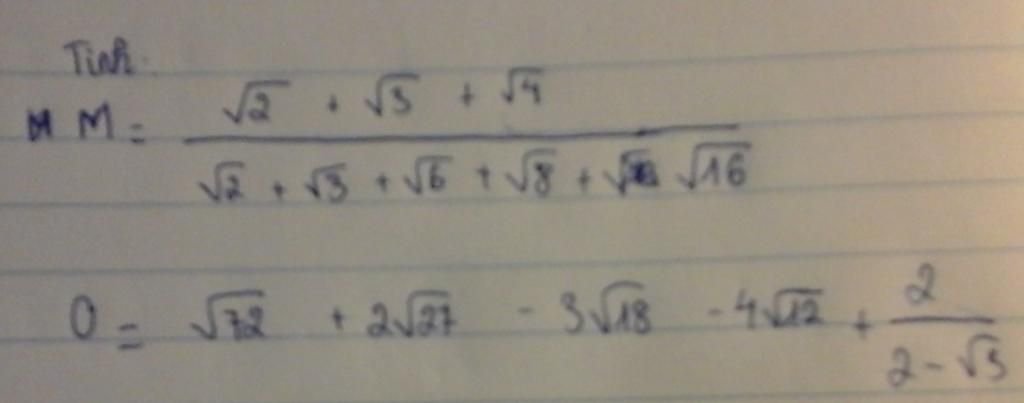 Tính:
M = \frac{\sqrt{2} + \sqrt{3} + \sqrt{4}}{\sqrt{2} + \sqrt{3} + \sqrt{6} + \sqrt{8} + \sqrt{16}}
O = \sqrt{72} + 2\sqrt{27} - 3\sqrt{18} - 4\sqrt{12} + \frac{2}{2 - \sqrt{3}}